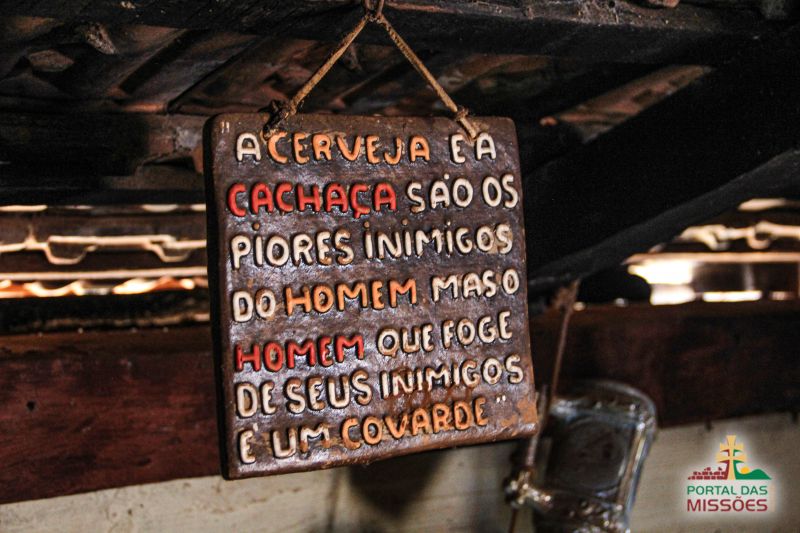 "A CERVEJA E A
CACHAÇA SÃO OS
PIORES INIMIGOS
DO HOMEM MAS O
HOMEM QUE FOGE
DE SEUS INIMIGOS
É UM COVARDE"
PORTAL DAS
MISSÕES